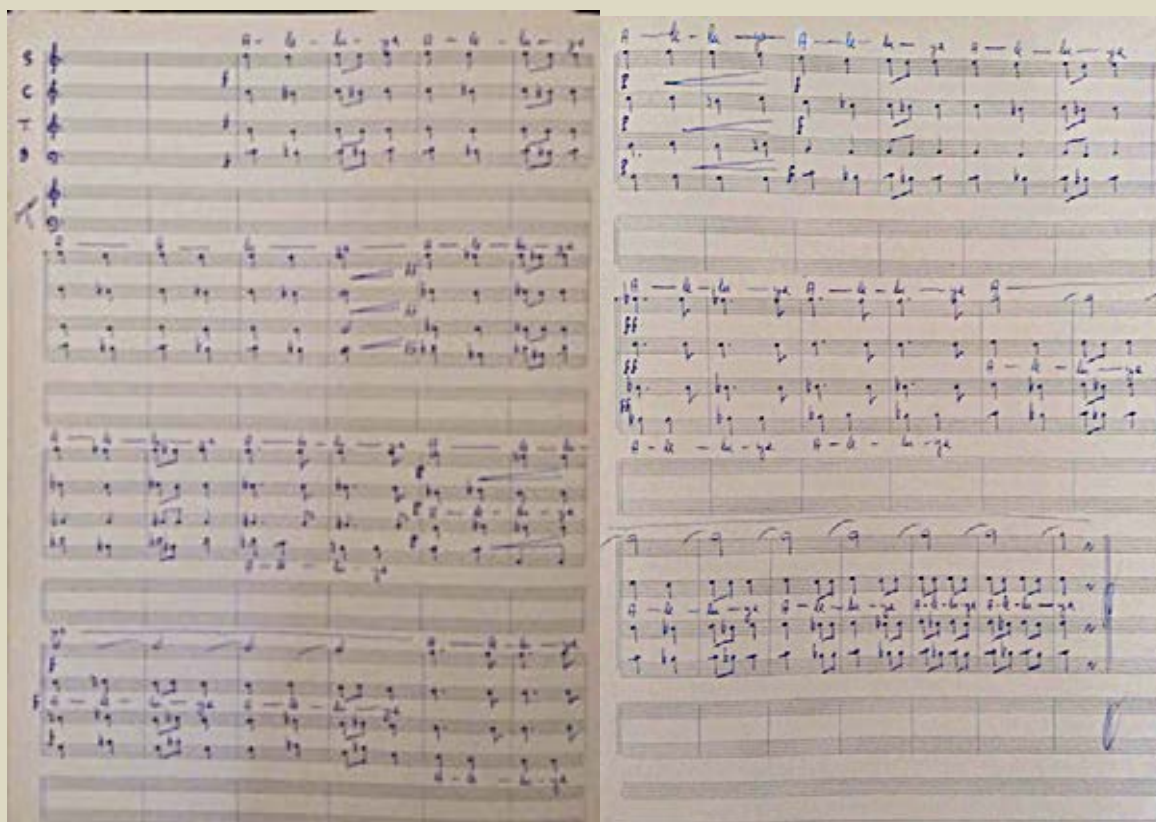 A - le - lu - ya A - le - lu - ya
S
C
T
B
A - le - lu - ya A - le - lu - ya
A - le - lu - ya A - le - lu - ya A - le - lu -
A - le - lu - ya
A - le - lu - ya
ya A - le - lu - ya
A - le - lu - ya A - le - lu - ya
A - le - lu - ya
A - le - lu - ya A - le - lu - ya A - le - lu - ya
A - le - lu - ya A - le - lu - ya A
A - le - lu - ya
A - le - lu - ya A - le - lu - ya
A - le - lu - ya A - le - lu - ya A - le - lu - ya A - le - lu - ya